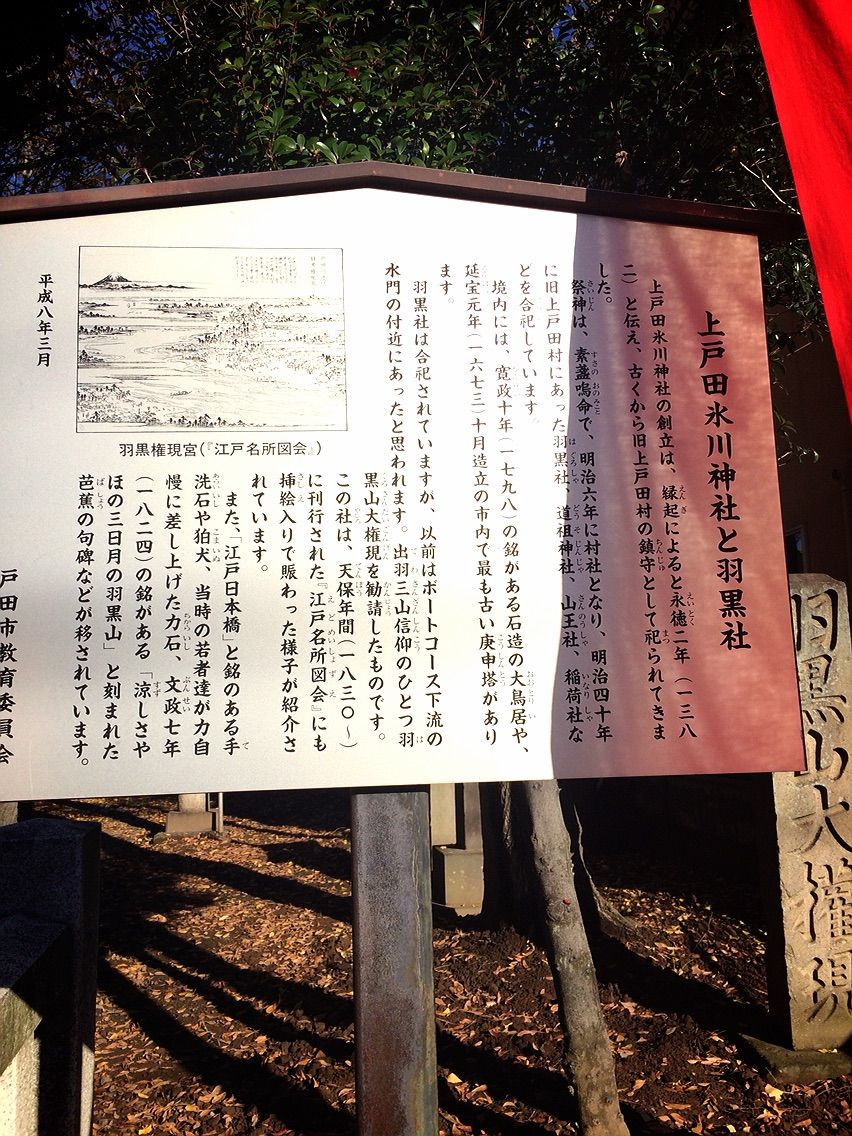 上戸田氷川神社と羽黒社
上戸田氷川神社の創立は、縁起によると永徳二年(一三八
二)と伝え、古くから旧上戸田村の鎮守として祀られてきま
した。
祭神は、素盞嗚命で、明治六年に村社となり、明治四十年
に旧上戸田村にあった羽黒社、道祖神社、山王社、稲荷社な
どを合祀しています。
境内には、寛政十年(一七九八)の銘がある石造の大鳥居や、
延宝元年(一六七三)十月造立の市内で最も古い庚申塔があり
ます。
羽黒社は合祀されていますが、以前はボートコース下流の
水門の付近にあったと思われます。出羽三山信仰のひとつ羽
黒山大権現を勧請したものです。
この社は、天保年間(一八三〇〜)
に刊行された『江戸名所図会』にも
挿絵入りで賑わった様子が紹介さ
れています。
また、「江戸日本橋」と銘のある手
洗石や狛犬、当時の若者達が力自
慢に差し上げた力石、文政七年
(一八二四)の銘がある「涼しさや
ほの三日月の羽黒山」と刻まれた
芭蕉の句碑などが移されています。
羽黒権現宮(『江戸名所図会』)
平成八年三月
戸田市教育委員会
羽黒山大権現